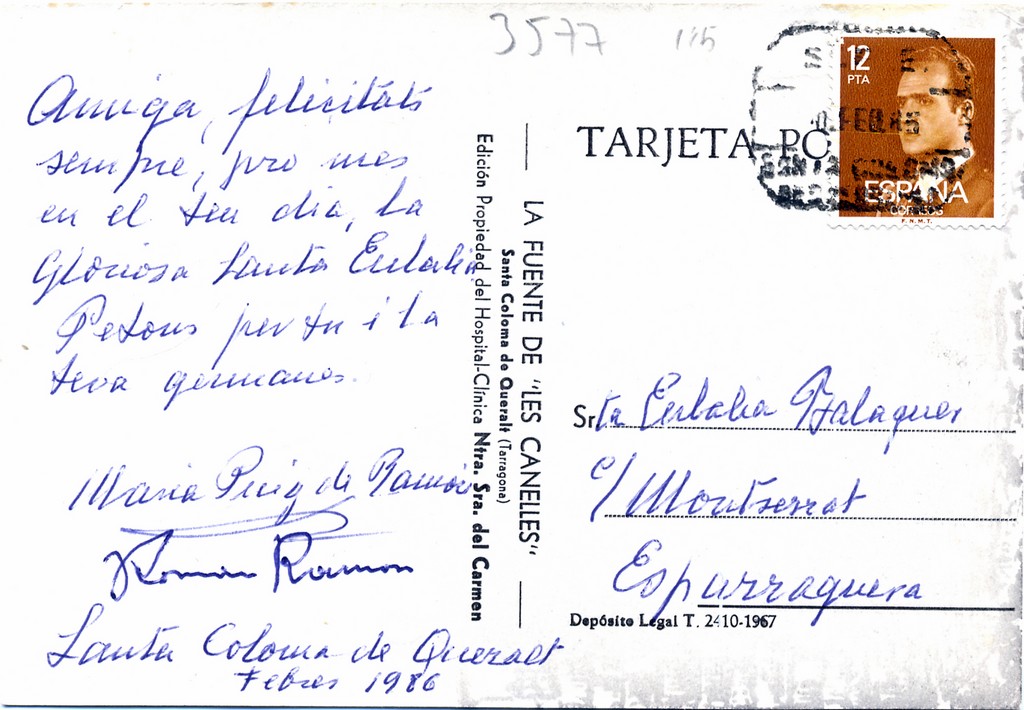 3577
115
Amiga, felicitats
sempre, pro mes
en el teu dia, La
Gloriosa Santa Eulalia
Petons per tu i la
teva germanes.
Maria Puig de Ramón
Roman Ramon
Santa Coloma de Queralt
Febrer 1986
LA FUENTE DE "LES CANELLES"
Santa Coloma de Queralt (Tarragona)
Edición Propiedad del Hospital-Clínica Ntra. Sra. del Carmen
TARJETA PO
12
PTA
ESPAÑA
CORREOS
F.N.M.T.
FEB.86
SANTA COLOMA
Srta Eulalia Balaguer
c/ Montserrat
Esparraguera
Depósito Legal T. 2410-1967